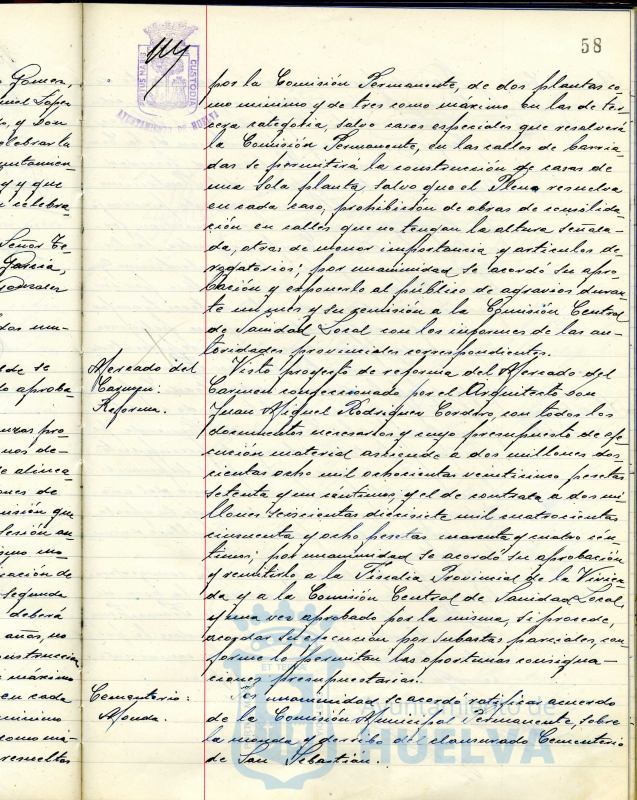 58
por la Comisión Permanente, de dos plantas co-
mo mínimo y de tres como máximo en las de ter-
cera categoría, salvo casos especiales que resolverá
la Comisión Permanente, en las calles de barria-
das se permitirá la construcción de casas de
una sola planta, salvo que el Pleno resuelva
en cada caso, prohibición de obras de consolida-
ción en calles que no tengan la altura señala-
da, otras de menor importancia y artículos de-
rogatorios; por unanimidad se acordó su apro-
bación y exponerlo al público de agravios duran-
te un mes y su remisión a la Comisión Central
de Sanidad Local con los informes de las au-
toridades provinciales correspondientes.
Mercado del
Carmen:
Reforma.
Visto proyecto de reforma del Mercado del
Carmen confeccionado por el Arquitecto Don
Juan Miguel Rodríguez Cordero, con todos los
documentos necesarios y cuyo presupuesto de eje-
cución material asciende a dos millones dos
cientas ocho mil ochocientas veinticinco pesetas
setenta y un céntimos y el de contrata a dos mi-
llones seiscientas diecisiete mil cuatrocientas
cincuenta y ocho pesetas cuarenta y cuatro cén-
timos; por unanimidad se acordó su aprobación
y remitirlo a la Fiscalía Provincial de la Vivien
da y a la Comisión Central de Sanidad Local,
y una vez aprobado por la misma, si procede,
acordar su ejecución por subastas parciales, con-
forme lo permitan las oportunas consigna-
ciones presupuestarias.
Cementerio:
Monda.
Por unanimidad se acordó ratificar acuerdo
de la Comisión Municipal Permanente, sobre
la monda y derribo del clausurado Cementerio
de San Sebastián.
CUSTODIA
AYUNTAMIENTO DE HUELVA
Ayuntamiento de
HUELVA
Gomez,
Lopez
y Don
celebrar la
y que
celebra-
Señor Te-
García,
Gonzalez
se
aproba-
pro-
de-
alinea-
ones de
misión que
sesión an
ación de
segunda
deberá
años, no
construccion
máximo
en cada
mínimo
como má-
resueltos